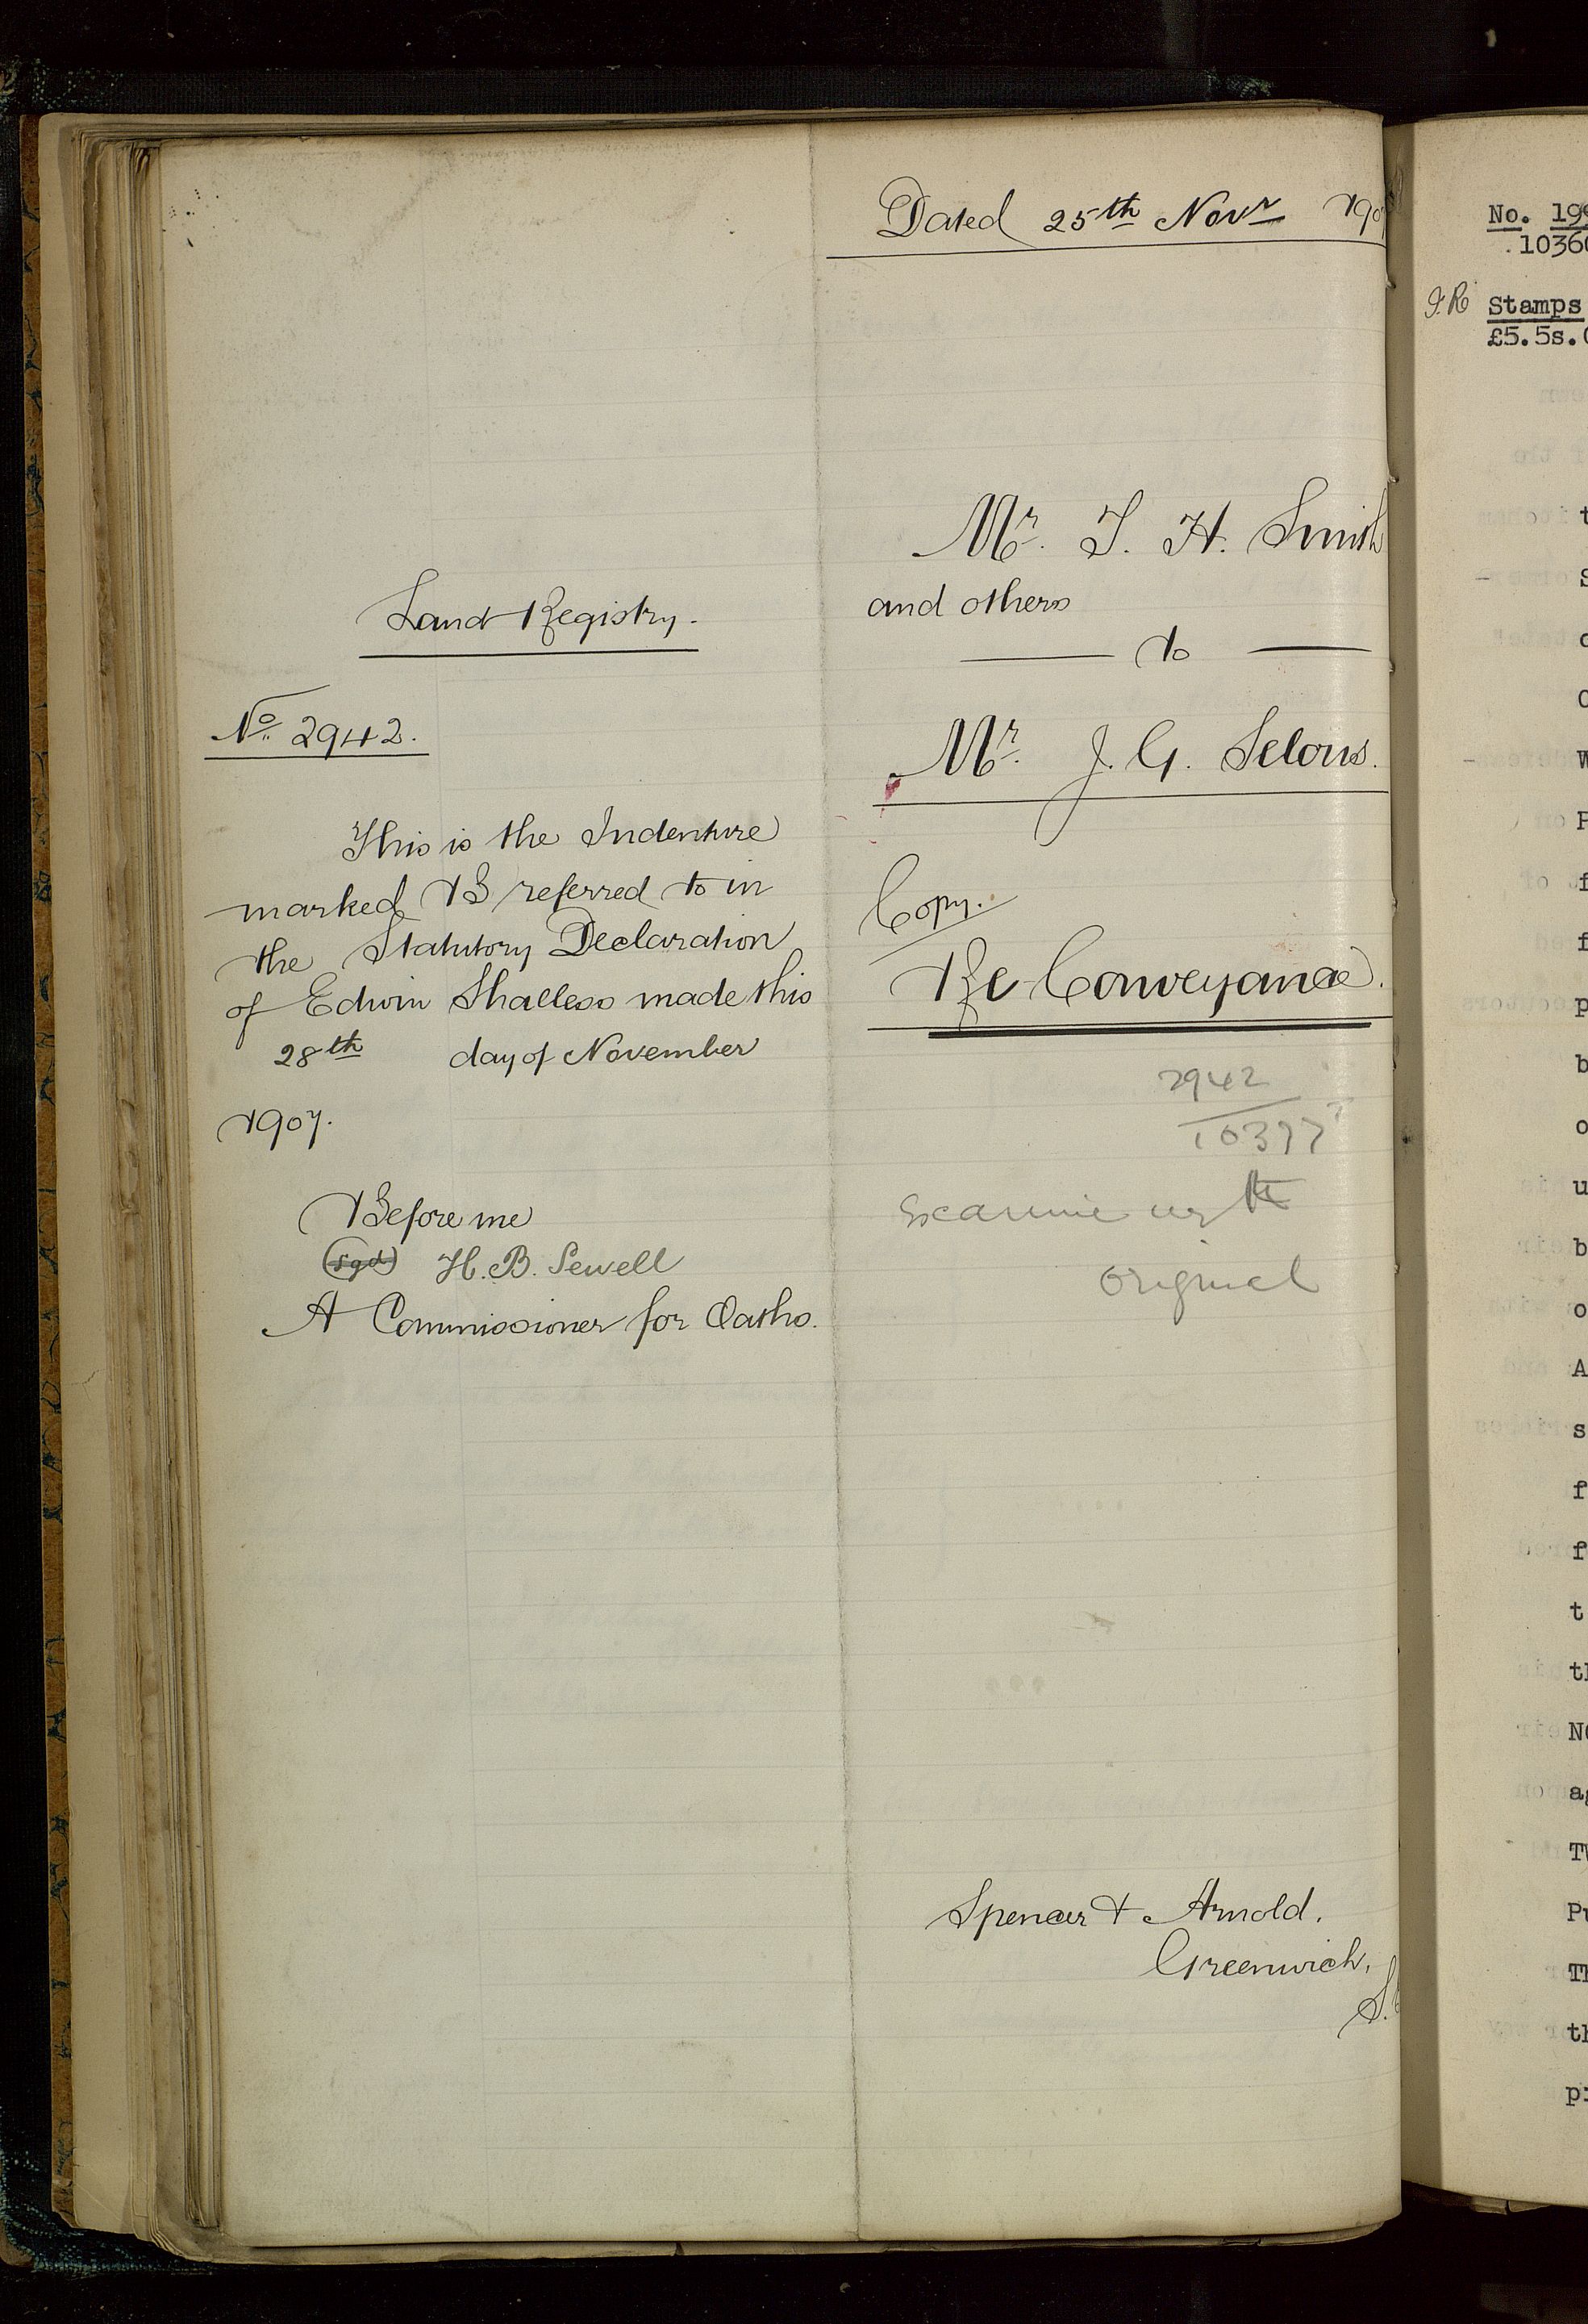 Land Registry.
No. 2942.
This is the Indenture
marked B referred to in
the Statutory Declaration
of Edwin Shalless made this
28th day of November
1907.
Before me
(sgd) H. B. Sewell
A Commissioner for Oaths.
Dated 25th Novr 190
Mr. T. H. Smith
and others
to
Mr. J. G. Selous.
Copy.
Re-Conveyance.
2942
10377
Examine with
original
Spencer & Arnold.
Greenwich,
S.
No. 19
1036
I.R. Stamps
£5.5s.